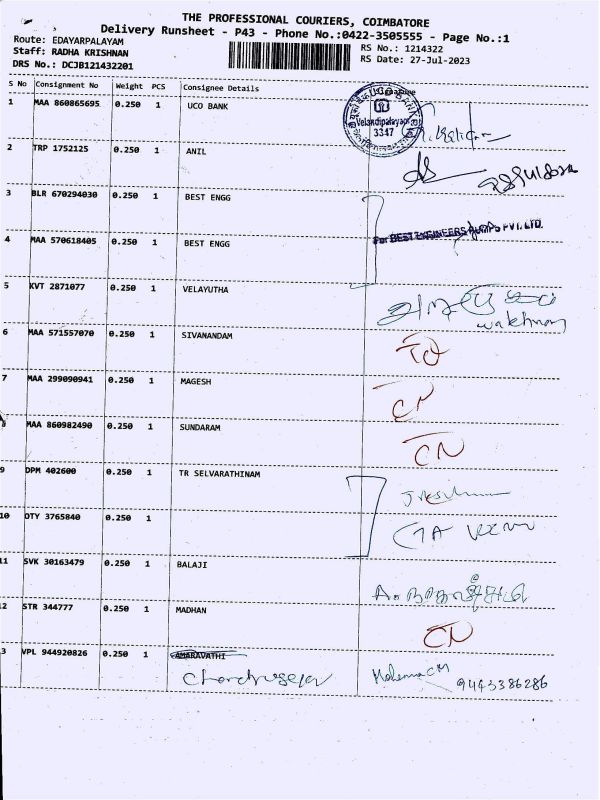 THE PROFESSIONAL COURIERS, COIMBATORE
Delivery Runsheet - P43 - Phone No.:0422-3505555 - Page No.:1
Route: EDAYARPALAYAM
RS No.: 1214322
Staff: RADHA KRISHNAN
RS Date: 27-Jul-2023
DRS No.: DCJB121432201
S No Consignment No Weight PCS Consignee Details
1 MAA 860865695 0.250 1 UCO BANK
Velandipalayam
3347
2 TRP 1752125 0.250 1 ANIL
3 BLR 670294030 0.250 1 BEST ENGG
For BEST ENGINEERS PUMPS PVT. LTD.
4 MAA 570618405 0.250 1 BEST ENGG
5 KVT 2871077 0.250 1 VELAYUTHA
6 MAA 571557070 0.250 1 SIVANANDAM
7 MAA 299090941 0.250 1 MAGESH
CN
8 MAA 860982490 0.250 1 SUNDARAM
CN
9 DPM 402600 0.250 1 TR SELVARATHINAM
10 OTY 3765840 0.250 1
11 SVK 30163479 0.250 1 BALAJI
12 STR 344777 0.250 1 MADHAN
CN
13 VPL 944920826 0.250 1 AMARAVATHI
9443386286